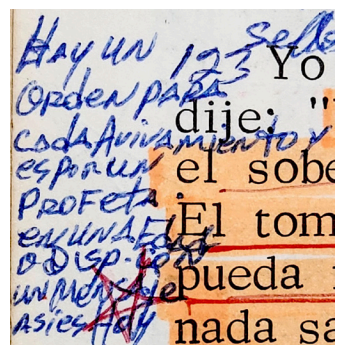 Hay un 123 Sello
Orden para
cada Avivamiento y
es por un
Profeta.
en una Edad
o Disp. con
un Mensaje
asi es Hoy
Yo
dije: "
el sobe
El tom
pueda
nada sa